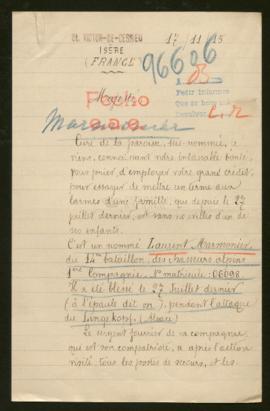 St VICTOR-DE-CESSIEU
17/11/15
ISÈRE
(FRANCE)
96606
Pedir informes
Majesté
Marmonier
Curé de la paroisse, sus-nommée, je
viens, connaissant votre inlassable bonté,
vous prier d'employer votre grand crédit,
pour essayer de mettre un terme aux
larmes d'une famille, qui depuis le 27
juillet dernier, est sans nouvelles d'un de
ses enfants.
C'est un nommé Laurent Marmonier
du 14me bataillon des Chasseurs alpins
1ère Compagnie. No matricule: 06098.
Il a été blessé le 27 Juillet dernier
(à l'épaule dit on), pendant l'attaque
du Lingekopf. (Alsace)
Le sergent fourrier de sa compagnie,
qui est son compatriote, a après l'action
visité tous les postes de secours, et les